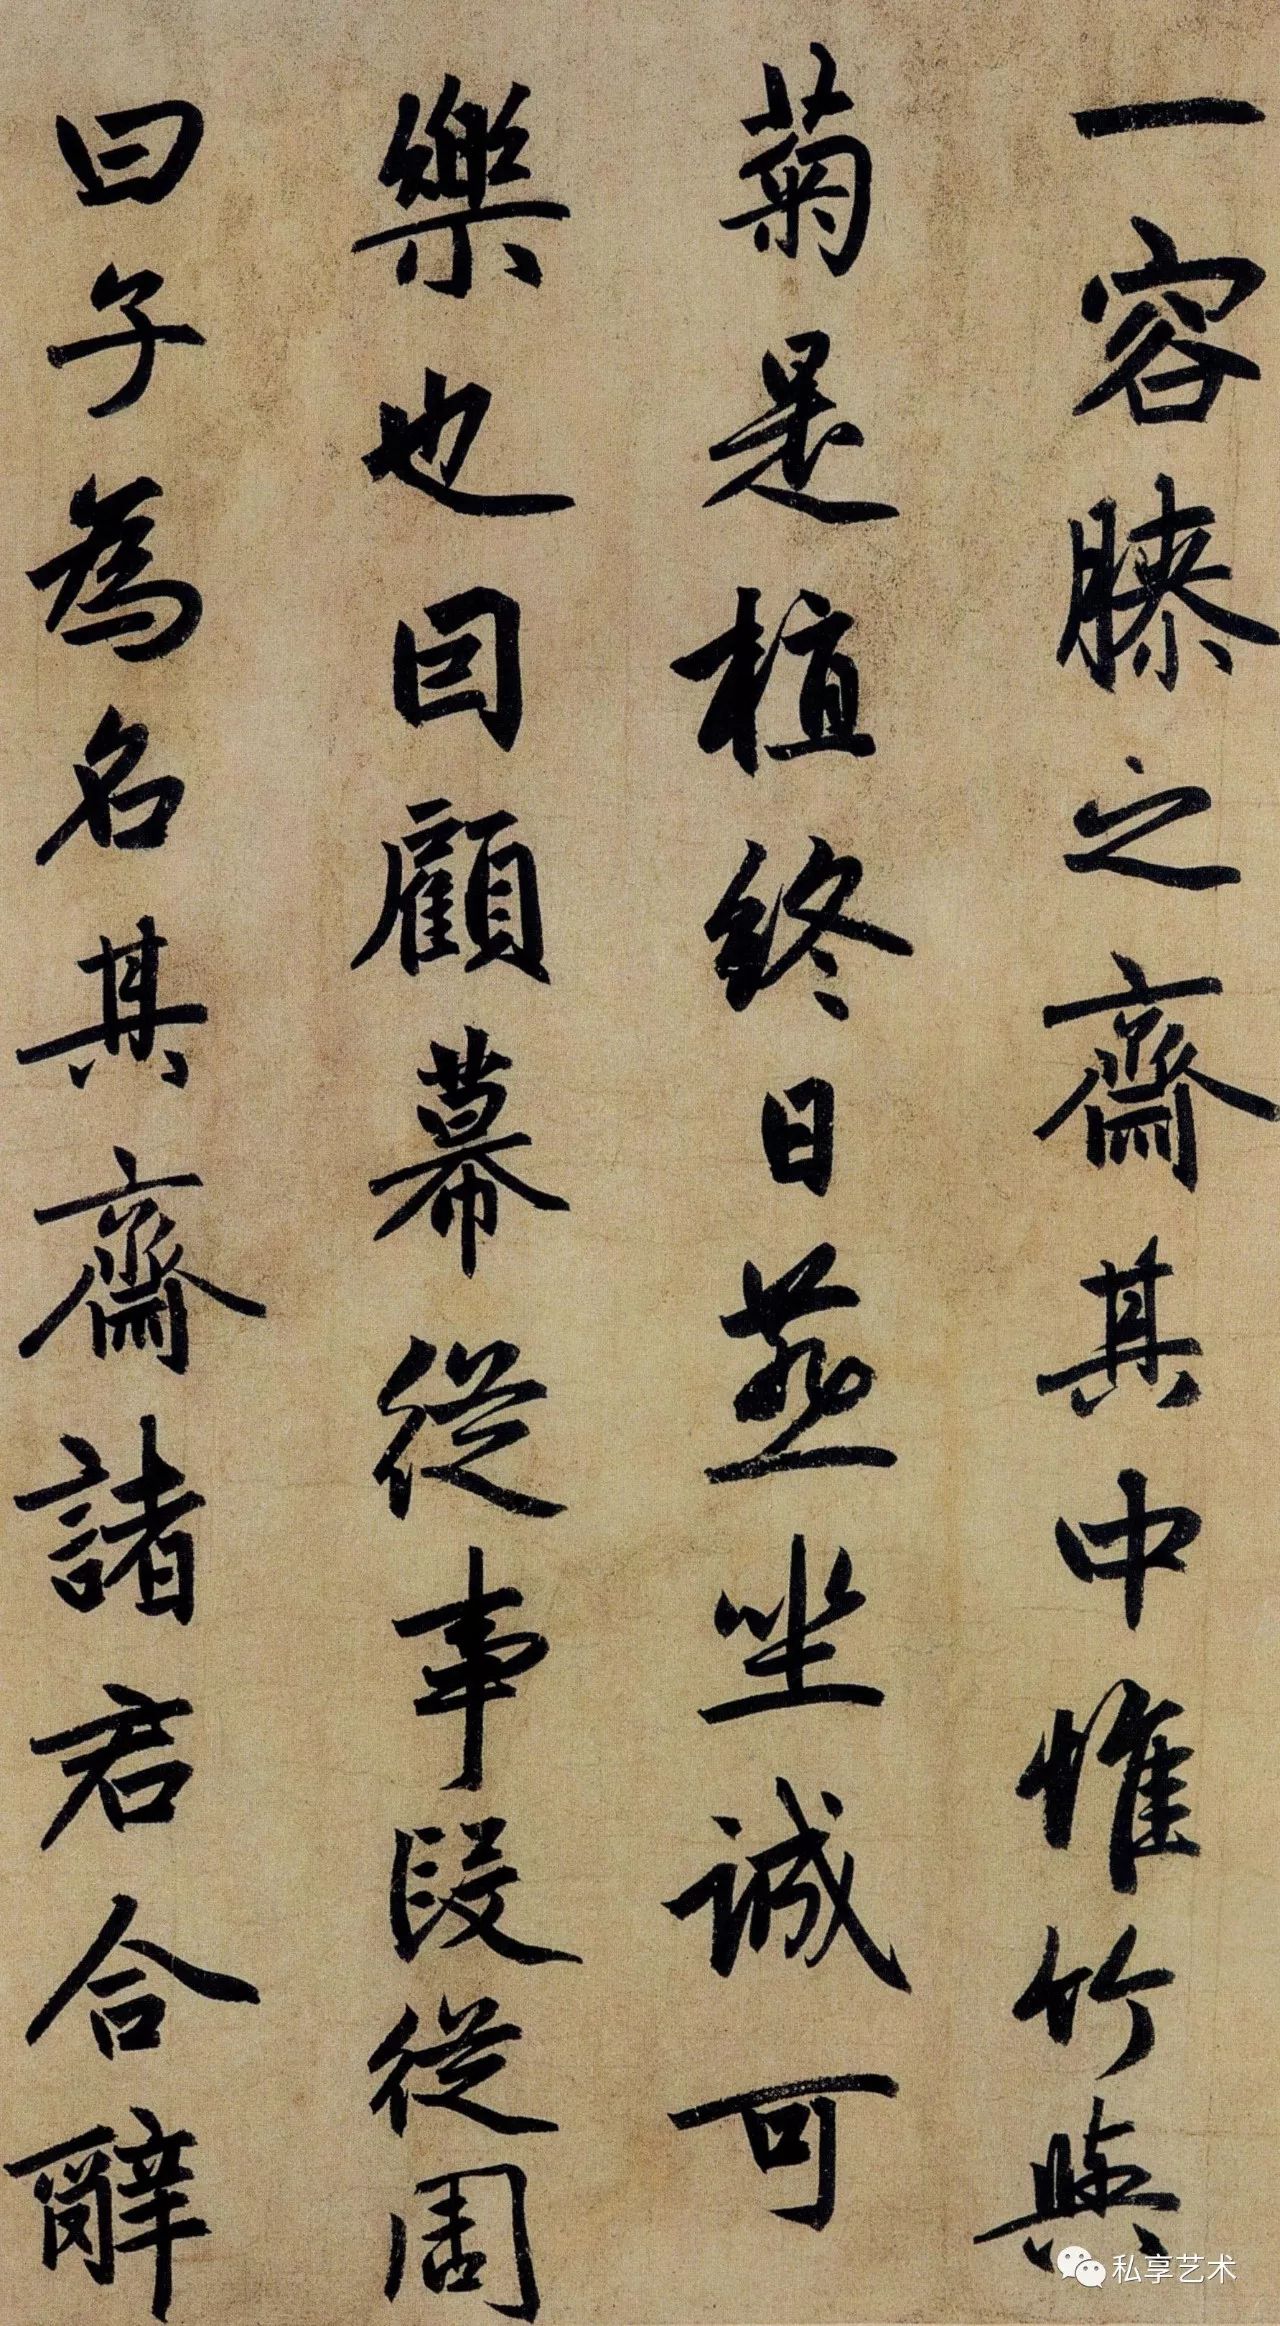 一容膝之齋其中惟竹與
菊是植終日燕坐誠可
樂也因顧幕從事段從周
曰子為名其齋諸君合辭
私享艺术